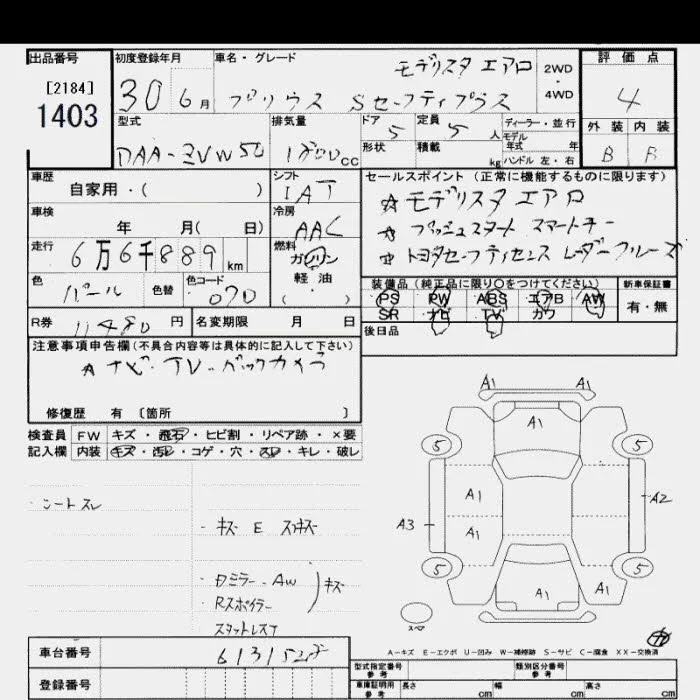 出品番号 初度登録年月 車名・グレード 評価点
[2184] モデリスタ エアロ 2WD
1403 30 6月 プリウス Sセーフティプラス ・4WD 4
型式 排気量 ドア 5 定員 5人 ディーラー・並行 外装 内装
DAA-ZVW50 1800cc 形状 積載 kg モデル年式 年 B B
ハンドル 左・右
車歴 シフト セールスポイント (正常に機能するものに限ります)
自家用・( ) IAT ☆モデリスタ エアロ
車検 冷房 ☆プッシュスタート スマートキー
年 月( 日) AAC ☆トヨタセーフティセンス レーダークルーズ
走行 6万6千889km 燃料 ガソリン
軽油
( )
色 パール 色替 色コード 070 装備品 (純正品に限り○をつけてください) 新車保証書
PS PW ABS エアB AW 有・無
SR ナビ TV カワ
R券 11480円 名変期限 月 日 後日品
注意事項申告欄(不具合内容等は具体的に記入して下さい)
☆ナビ・TV・バックカメラ
修復歴 有 [箇所 ]
検査員 FW キズ・飛石・ヒビ割・リペア跡・×要
記入欄 内装 キズ・汚レ・コゲ・穴・スレ・キレ・破レ
A1 A1
・シートスレ A1
5 5
A1 A2
・キズ E スリキズ A3 A1
5 5
・Dミラー・AW キズ A1 A1
Rスポイラー
スタットレスT スペア
A−キズ E−エクボ U−凹み W−補修跡 S−サビ C−腐食 XX−交換済
車台番号 型式指定番号 類別区分番号
参考 参考
登録番号 車庫証明用 長さ cm 幅 cm 高さ cm
参考